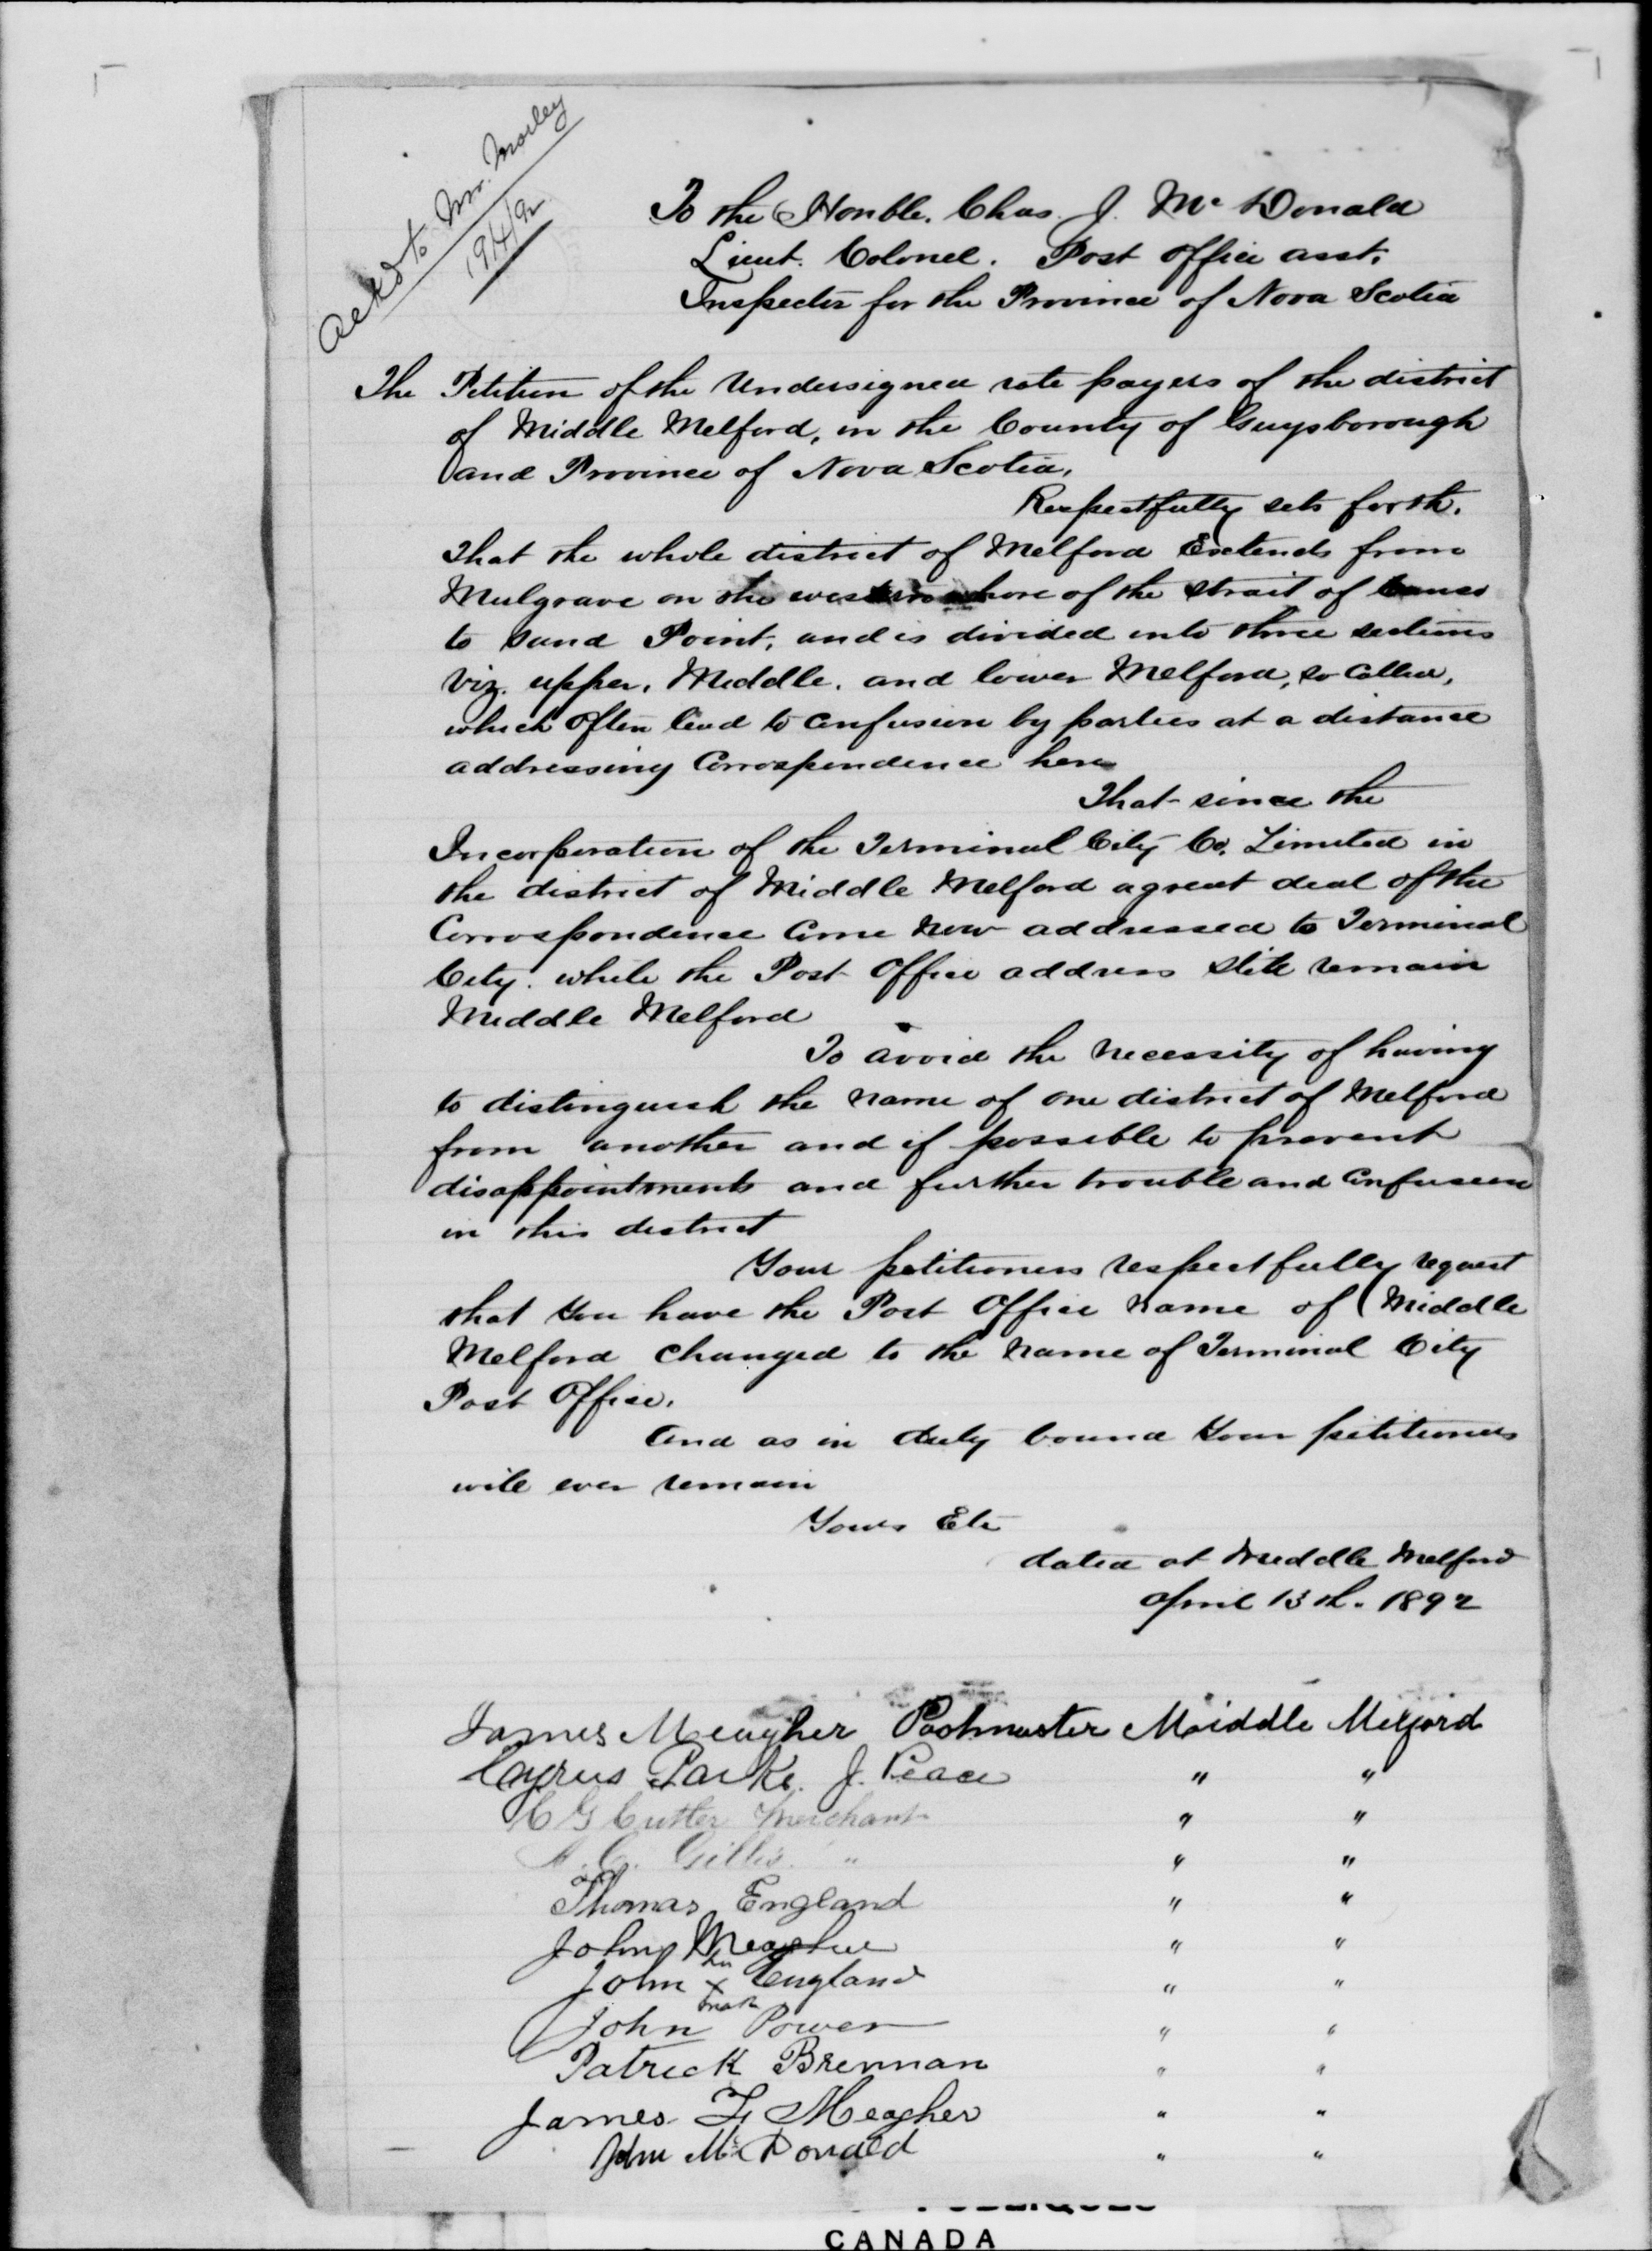 Ackd to Mr. Morley
19/4/92
To the Honble. Chas. J. Mc Donald
Lieut. Colonel. Post office asst.
Inspector for the Province of Nova Scotia
The Petition of the Undersigned rate payers of the district
of Middle Melford, in the County of Guysborough
and Province of Nova Scotia,
Respectfully sets forth.
That the whole district of Melford Extends from
Mulgrave on the western shore of the Strait of Canso
to Sand Point, and is divided into three sections
Viz. upper, Middle, and lower Melford, so called,
which Often lead to Confusion by parties at a distance
addressing Correspondence here
That since the
Incorporation of the Terminal City Co. Limited in
the district of Middle Melford a great deal of the
Correspondence Come Now addressed to Terminal
City. while the Post Office address still remain
Middle Melford
To avoid the Necessity of having
to distinguish the Name of one district of Melford
from another and if possible to prevent
disappointments and further trouble and Confusion
in this district
Your petitioners respectfully request
that You have the Post Office Name of Middle
Melford Changed to the Name of Terminal City
Post Office.
And as in duty bound Your petitioners
will ever remain
Yours Etc
dated at Middle Melford
April 13th. 1892
James Meagher Postmaster Middle Melford
Cyrus Parke. J. Peace " "
C G Cutler Merchant " "
Gillis. " " "
Thomas England " "
John Meagher " "
his
John x England " "
mark
John Power " "
Patrick Brennan " "
James F Meagher " "
John McDonald " "
CANADA